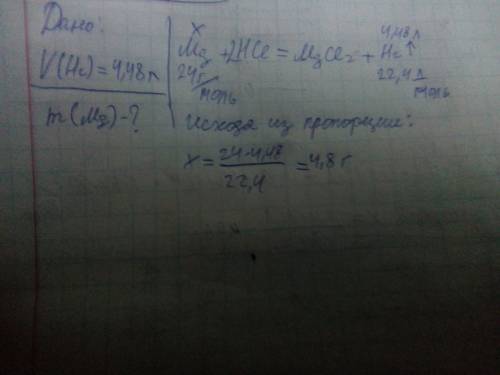 Дано:
V(H₂) = 4,48 л
m(Mg) - ?
x 4,48 л
Mg + 2HCl = MgCl₂ + H₂↑
24 г/моль 22,4 л/моль
Исходя из пропорции:
x = 24·4,48 / 22,4 = 4,8 г